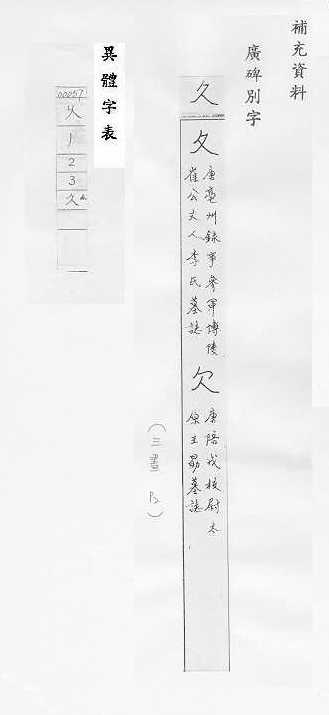 補充資料
廣碑別字
久
夂
唐亳州錄事參軍博陵
崔公夫人李氏墓誌
欠
唐陪戎校尉太
原王勗墓誌
(三畫 P2)
異體字表
00057
乆
1
2
3
久